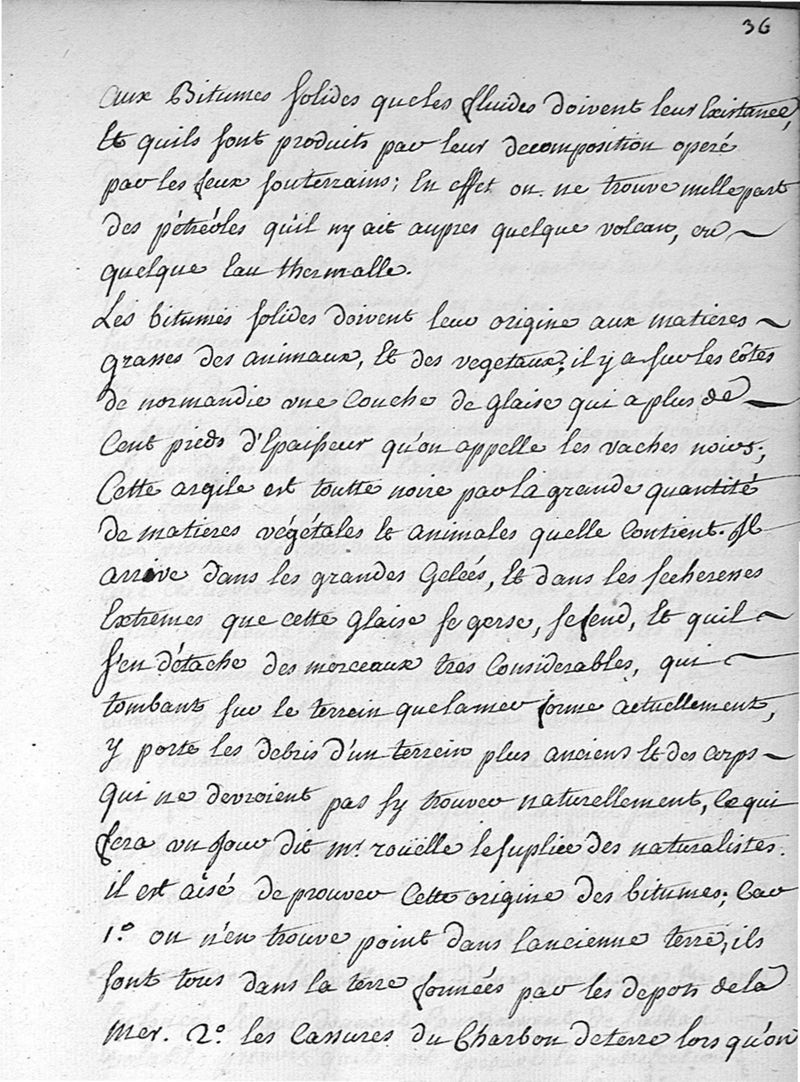 36
aux Bitumes solides que les fluides doivent leur Existance,
Et quils sont produits par leur decomposition operé
par les feux souterrains; En effet on ne trouve nulle part
des pétréoles qu'il ny ait aupres quelque volcan, ou
quelque Eau thermalle.
Les bitumes solides doivent leur origine aux matieres
grasses des animaux, Et des vegetaux; il y a sur les côtes
de normandie une Couche de glaise qui a plus de
Cent pieds d'Epaisseur qu'on appelle les vaches noirs;
Cette argile est toutte noire par la grande quantité
de matieres végétales Et animales quelle Contient. Il
arrive dans les grandes Gelées, Et dans les secheresses
Extrêmes que cette glaise se gerse, se fend, Et quil
s'en détache des morceaux tres Considerables, qui
tombant sur le terrein que la mer forme actuellement,
y porte les debris d'un terrein plus anciens Et des corps
qui ne devroient pas s'y trouver naturellement, Ce qui
fera un jour dit mr. roüelle le suplice des naturalistes.
il est aisé de prouver Cette origine des bitumes; Car
1.º on n'en trouve point dans lancienne terre, ils
sont tous dans la terre formées par les depots de la
Mer. 2.º les Cassures du Charbon de terre lors qu'on